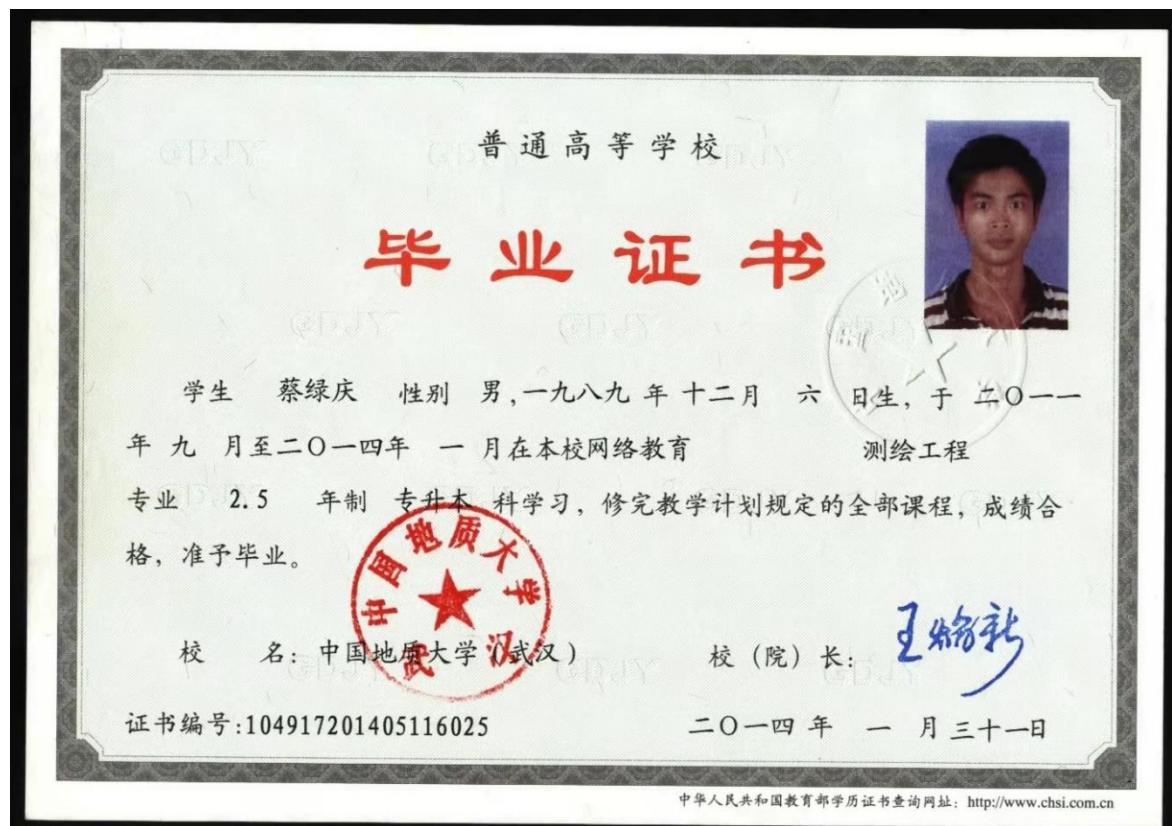 普通高等学校
毕业证书
学生 蔡绿庆 性别 男,一九八九 年 十二月 六 日生，于 二〇一一
年 九 月至二〇一四年 一 月在本校网络教育 测绘工程
专业 2.5 年制 专升本 科学习，修完教学计划规定的全部课程，成绩合
格，准予毕业。
中国地质大学
武汉
校 名：中国地质大学（武汉） 校（院）长：
证书编号:104917201405116025 二〇一四 年 一 月 三十一日
中华人民共和国教育部学历证书查询网址：http://www.chsi.com.cn